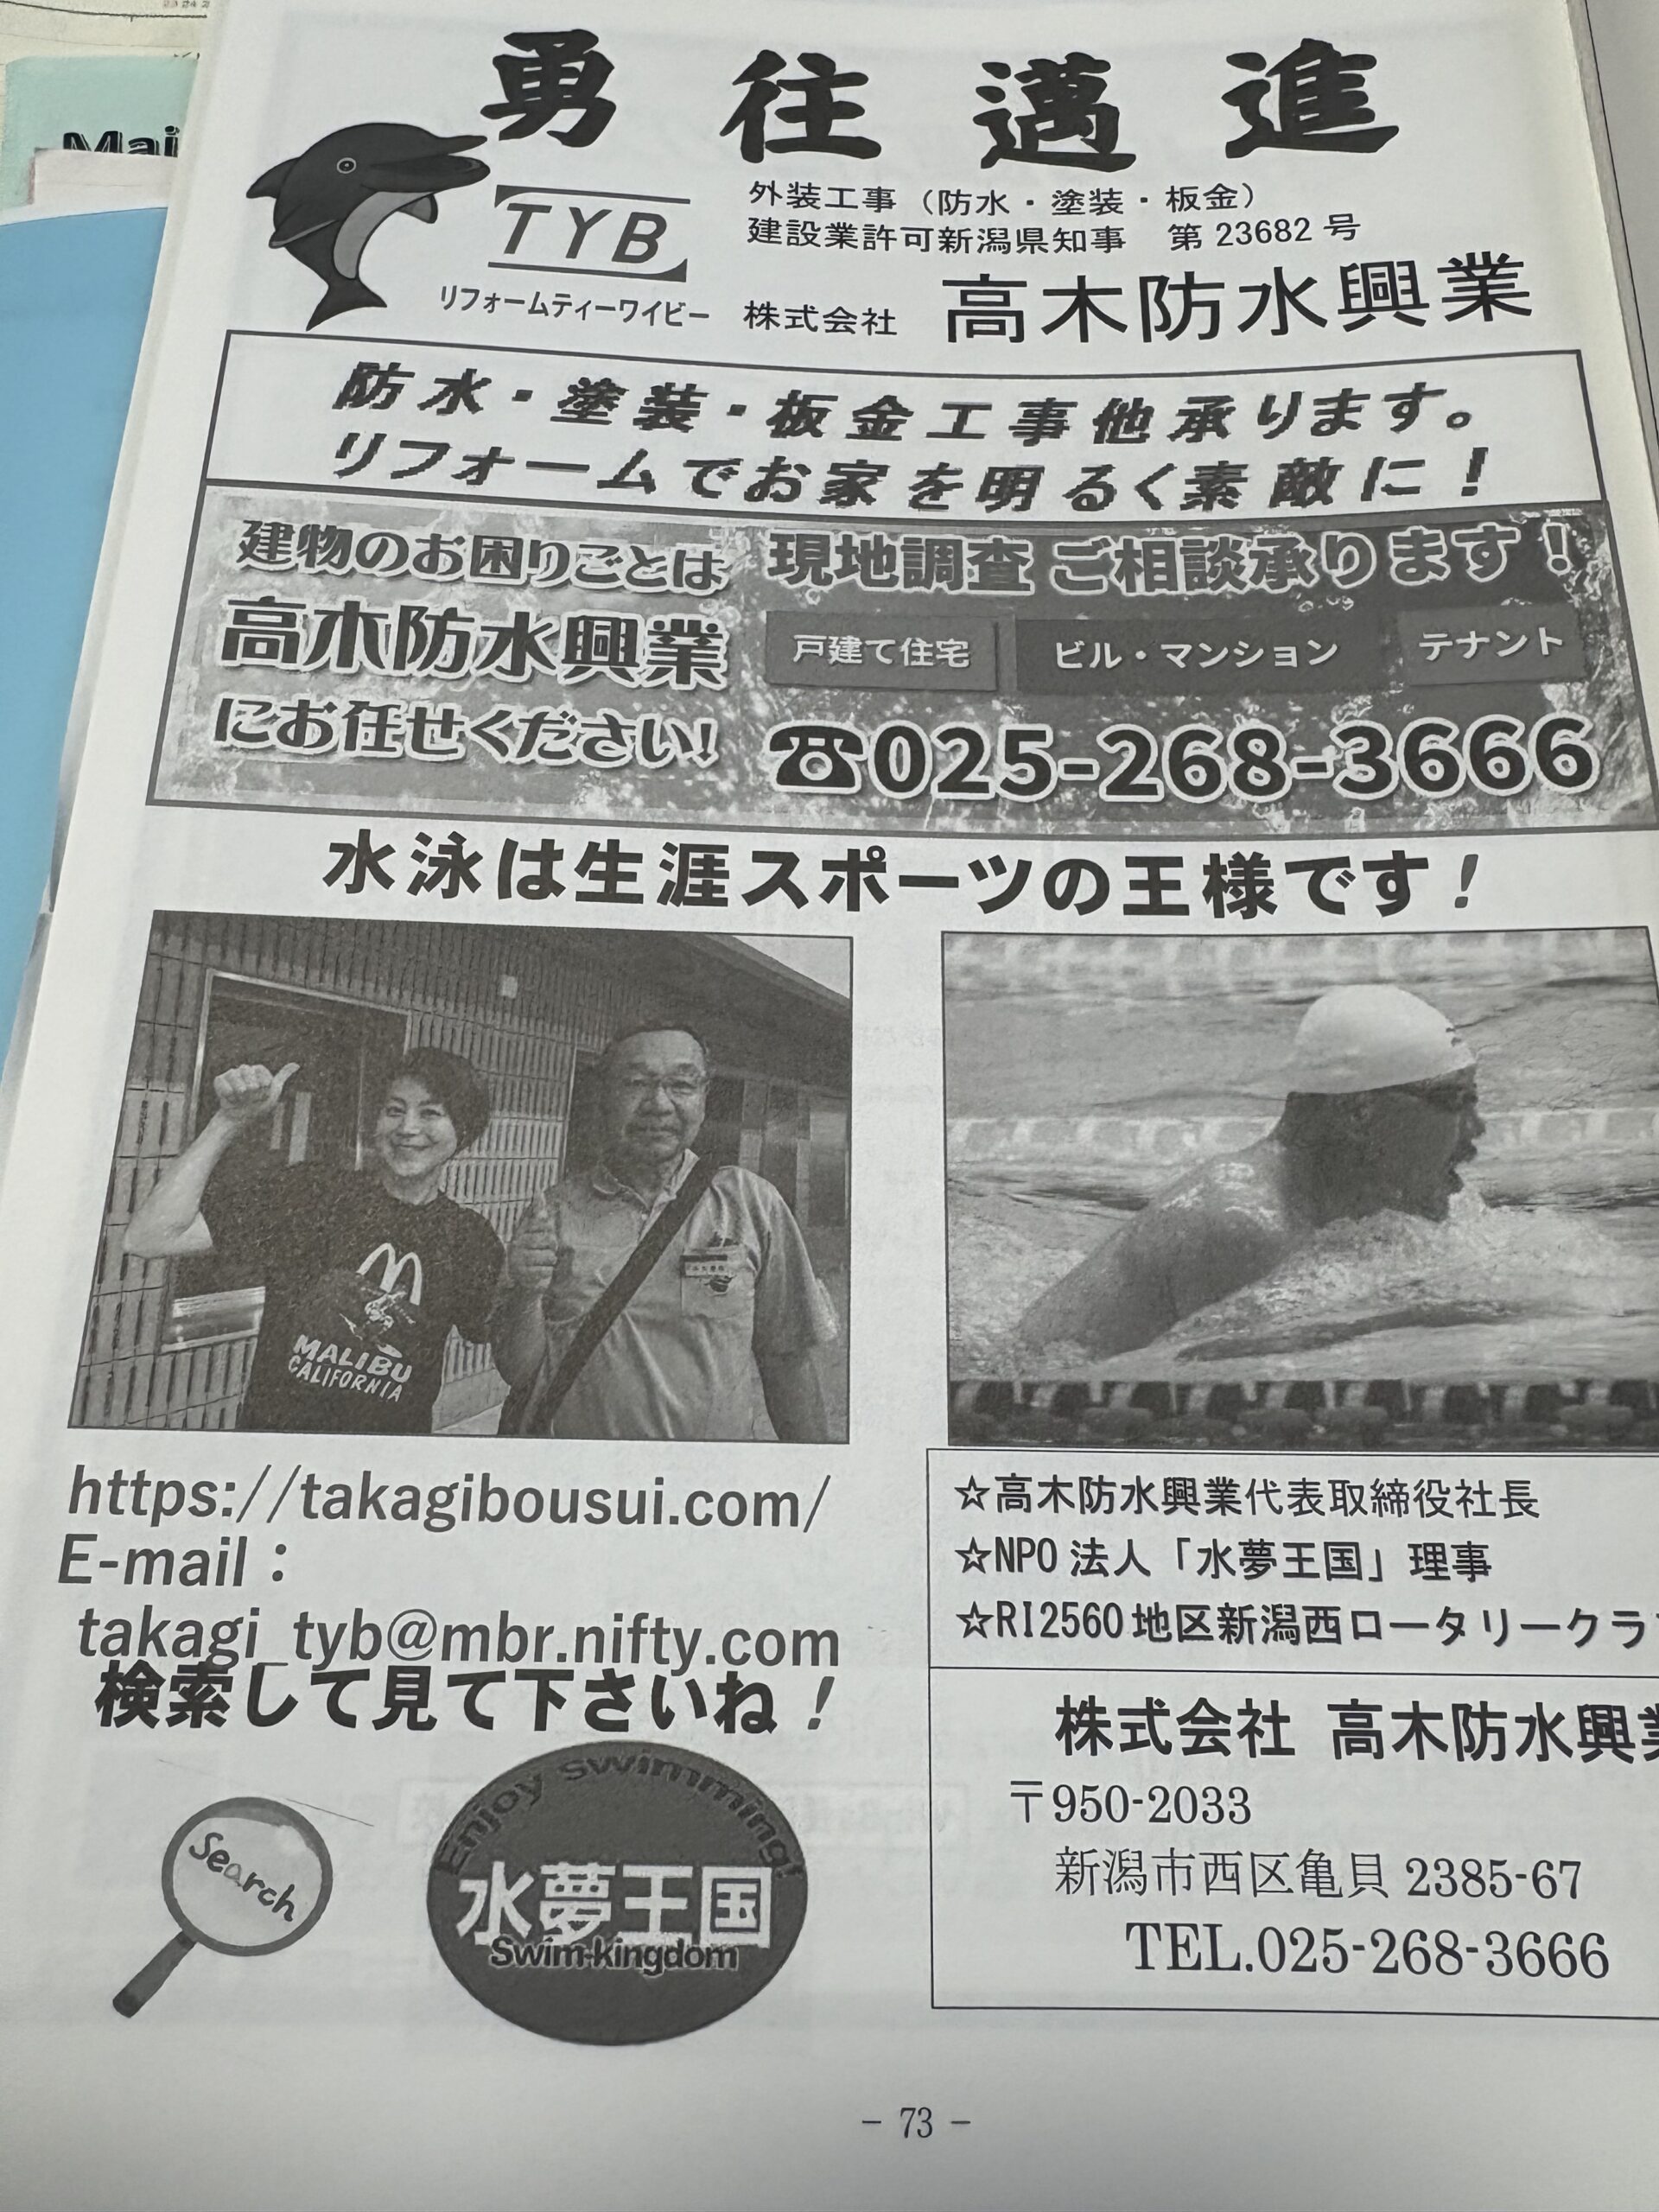 Mai
勇往邁進
TYB
リフォームティーワイビー
外装工事（防水・塗装・板金）
建設業許可新潟県知事　第 23682 号
株式会社　高木防水興業
防水・塗装・板金工事他承ります。
リフォームでお家を明るく素敵に！
建物のお困りごとは
高木防水興業
にお任せください!
現地調査 ご相談承ります！
戸建て住宅　ビル・マンション　テナント
☎025-268-3666
水泳は生涯スポーツの王様です！
MALIBU
CALIFORNIA
https://takagibousui.com/
E-mail：
takagi_tyb@mbr.nifty.com
検索して見て下さいね！
Search
Enjoy swimming!
水夢王国
Swim-kingdom
☆高木防水興業代表取締役社長
☆NPO 法人「水夢王国」理事
☆RI2560 地区新潟西ロータリークラ
株式会社 高木防水興業
〒950-2033
新潟市西区亀貝 2385-67
TEL.025-268-3666
- 73 -